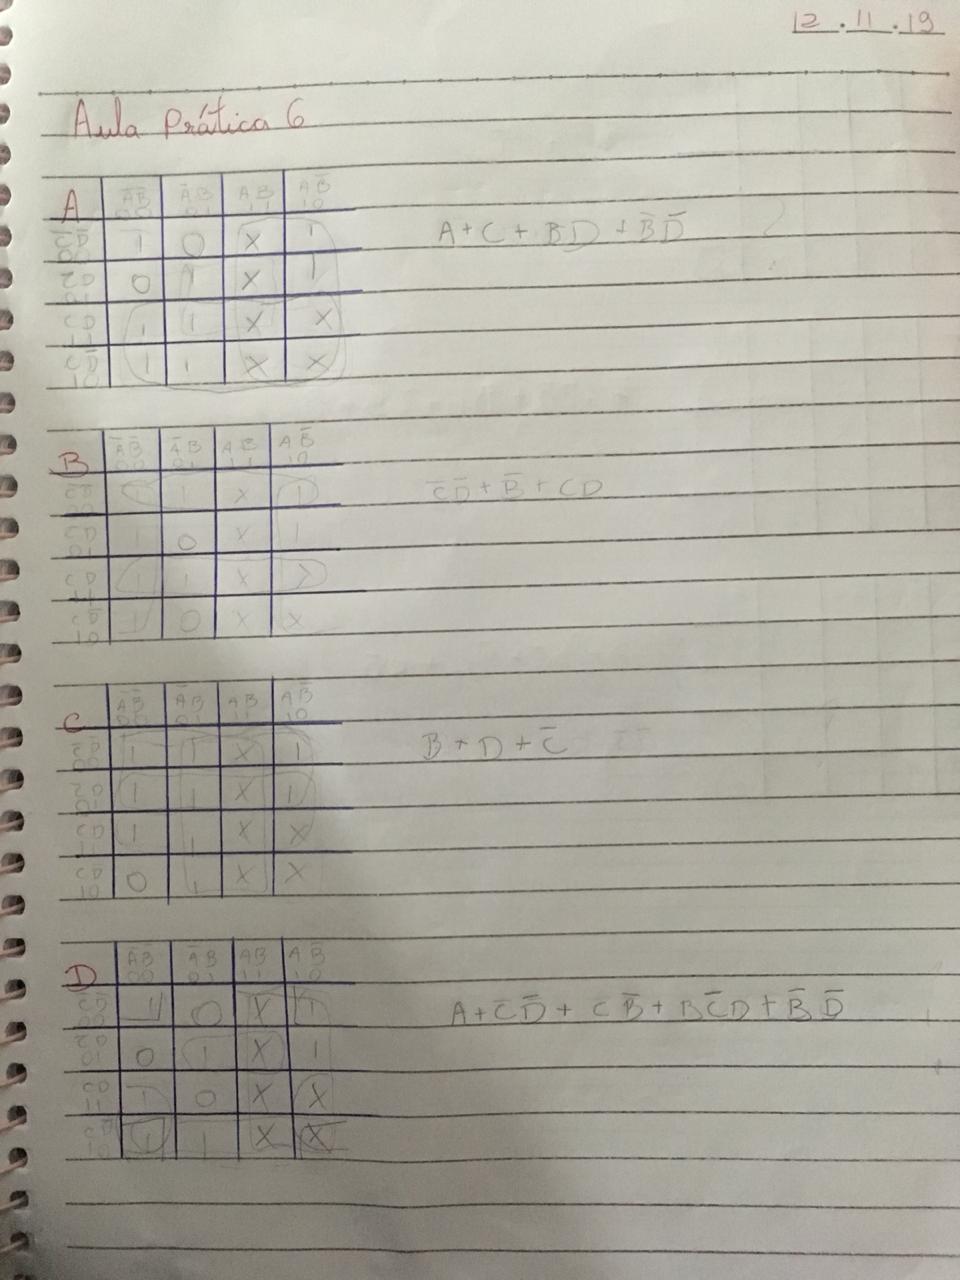 12.11.19
Aula Prática 6
A A̅B̅ A̅B AB AB̅
00 01 11 10
C̅D̅ 00 1 0 X 1
C̅D 01 0 1 X 1
CD 11 1 1 X X
CD̅ 10 1 1 X X
A+C+BD+B̅D̅
B A̅B̅ A̅B AB AB̅
00 01 11 10
C̅D̅ 00 1 1 X 1
C̅D 01 1 0 X 1
CD 11 1 1 X X
CD̅ 10 1 0 X X
C̅D̅+B̅+CD
C A̅B̅ A̅B AB AB̅
00 01 11 10
C̅D̅ 00 1 1 X 1
C̅D 01 1 1 X 1
CD 11 1 1 X X
CD̅ 10 0 1 X X
B+D+C̅
D A̅B̅ A̅B AB AB̅
00 01 11 10
C̅D̅ 00 1 0 X 1
C̅D 01 0 1 X 1
CD 11 1 0 X X
CD̅ 10 1 1 X X
A+C̅D̅+CB̅+BC̅D+B̅D̅